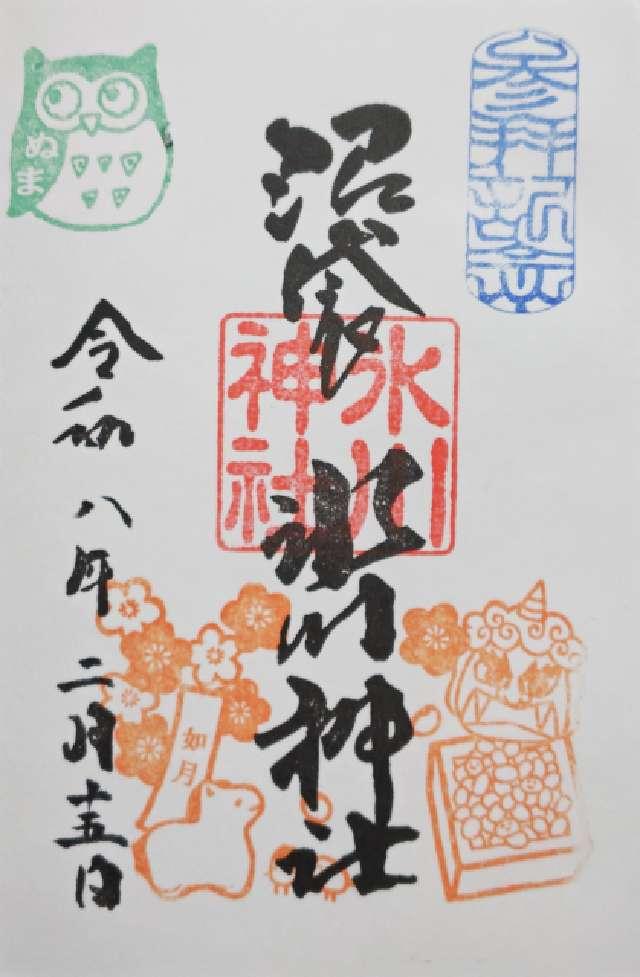 参拝記念
沼袋
氷川神社
氷川
神社
ぬま
如月
令和八年二月十五日